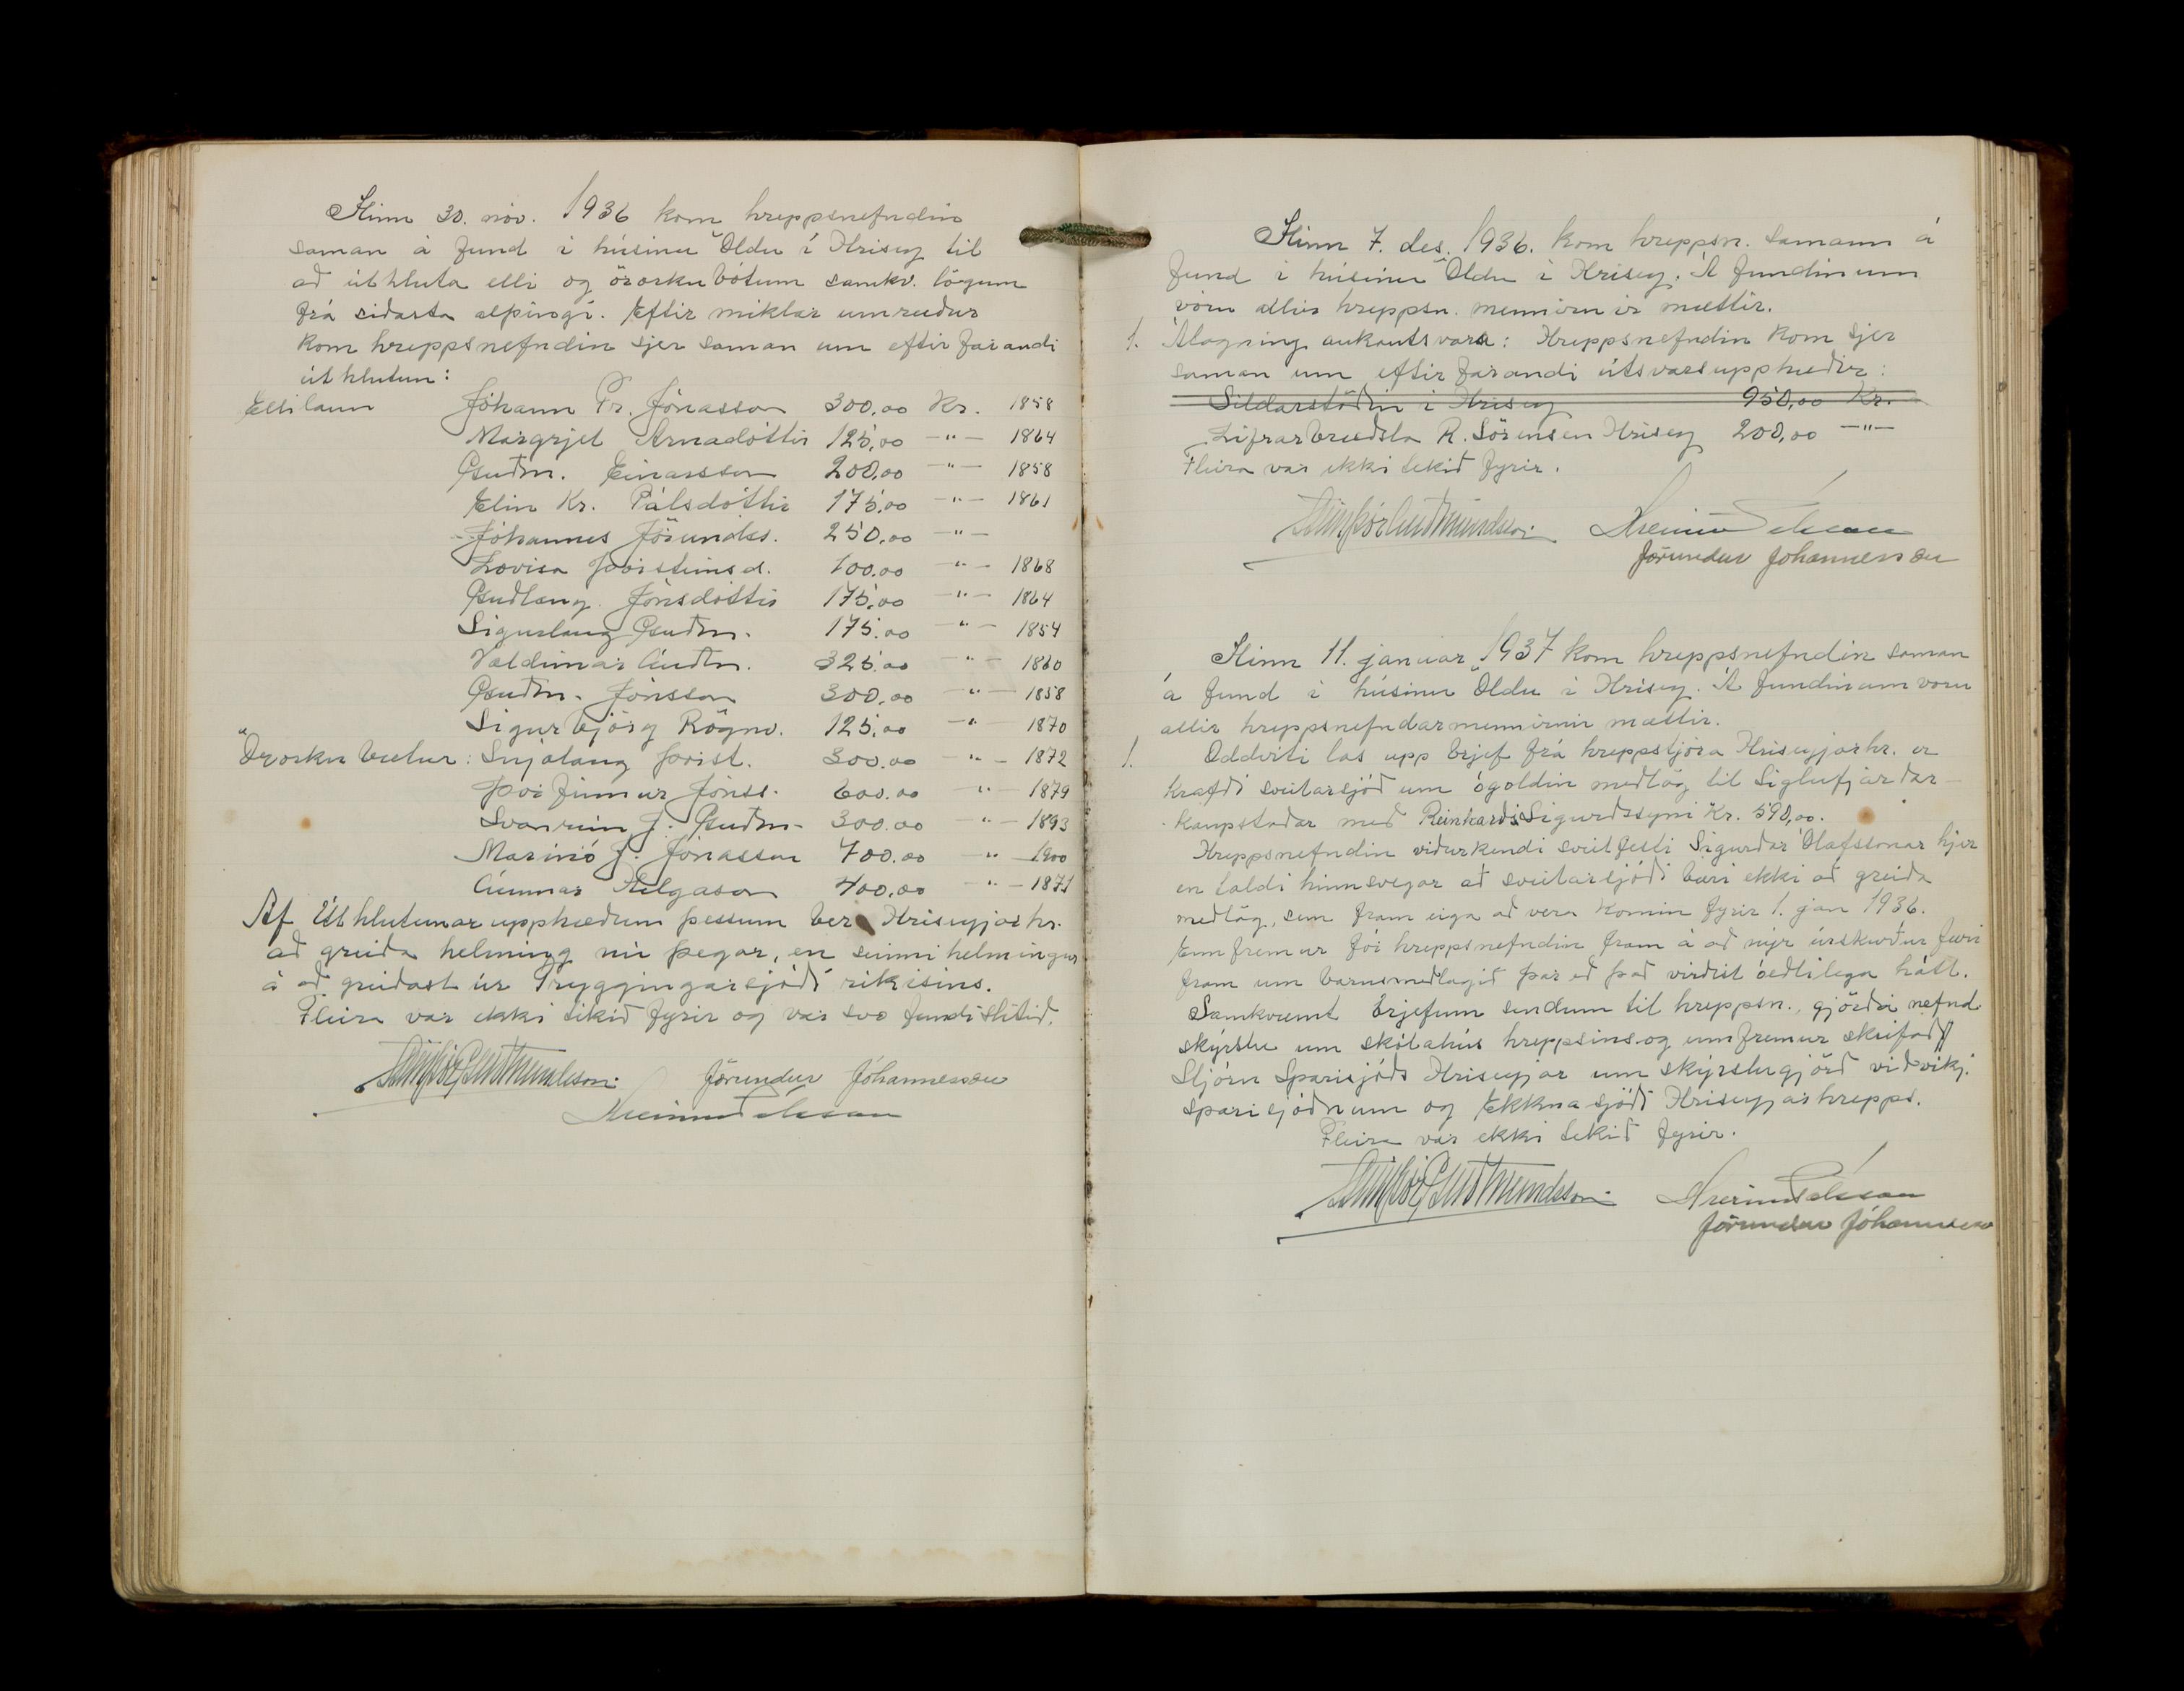 Hinn 30. nóv. 1936 kom hreppsnefndin
saman á fund í húsinu Öldu í Hrísey til
að úthluta elli og örorkubótum samkv. lögum
frá síðasta alþingi. Eftir miklar umræður
kom hreppsnefndin sjer saman um eftirfarandi
úthlutun:
Ellilaun Jóhann Fr. Jónasson 300,00 Kr. 1858
Margrjet Árnadóttir 125,00 —"— 1864
Guðm. Einarsson 200,00 —"— 1858
Elín Kr. Pálsdóttir 175,00 —"— 1861
Jóhannes Jörundss. 250,00 —"—
Lovísa Þorsteinsd. 100,00 —"— 1868
Guðlaug Jónsdóttir 175,00 —"— 1864
Sigurlaug Guðm. 175,00 —"— 1854
Valdimar Guðm. 325,00 —"— 1860
Guðm. Jónsson 300,00 —"— 1858
Sigurbjörg Rögnv. 125,00 —"— 1870
Örorkubætur: Snjólaug Þorst. 300,00 —"— 1872
Þorfinnur Jónss. 600,00 —"— 1879
Svanrún J. Guðm. 300,00 —"— 1893
Marinó J. Jónasson 700,00 —"— 1900
Gunnar Helgason 400,00 —"— 1871
Af Úthlutunarupphæðum þessum ber Hríseyjarhr.
að greiða helming nú þegar, en seinni helmingur
á að greiðast úr Tryggingarsjóði ríkisins.
Fleira var ekki tekið fyrir og var svo fundi slitið.
Jörundur Jóhannesson
Hinn 7. des. 1936. kom hreppsn. samann á
fund í húsinu Öldu í Hrísey. Á fundinum
voru allir hreppsn. mennirnir mættir.
1. Álagning aukaútsvara: Hreppsnefndin kom sjer
saman um eftirfarandi útsvarsupphæðir:
Síldarstöðin í Hrísey 950,00 Kr.
Lifrarbræðsla R. Sörensen Hrísey 200,00 —"—
Fleira var ekki tekið fyrir.
Jörundur Jóhannesson
Hinn 11. janúar 1937 kom hreppsnefndin saman
á fund í húsinu Öldu í Hrísey. Á fundinum voru
allir hreppsnefndarmennirnir mættir.
1. Oddviti las upp brjef frá hreppstjóra Hríseyjarhr. er
krafði sveitarsjóð um ógoldin meðlög til Siglufjarðar-
kaupstaðar með Reinharði Sigurðssyni Kr. 590,00.
Hreppsnefndin viðurkendi sveitfesti Sigurðar Ólafssonar hjer
en taldi hinnsvegar að sveitarsjóði bæri ekki að greiða
meðlög, sem fram eiga að vera komin fyrir 1. jan 1936.
Ennfremur fór hreppsnefndin fram á að nýr úrskurður færi
fram um barnsmeðlagið þar eð það virðist óeðlilega hátt.
Samkvæmt brjefum sendum til hreppsn., gjörði nefnd
skýrslu um skólahús hreppsins og ennfremur skrifað
Stjórn Sparisjóðs Hríseyjar um skýrslugjörð viðvíkj.
sparisjóðnum og Ekknasjóði Hríseyjarhrepps.
Fleira var ekki tekið fyrir.
Jörundur Jóhannesson